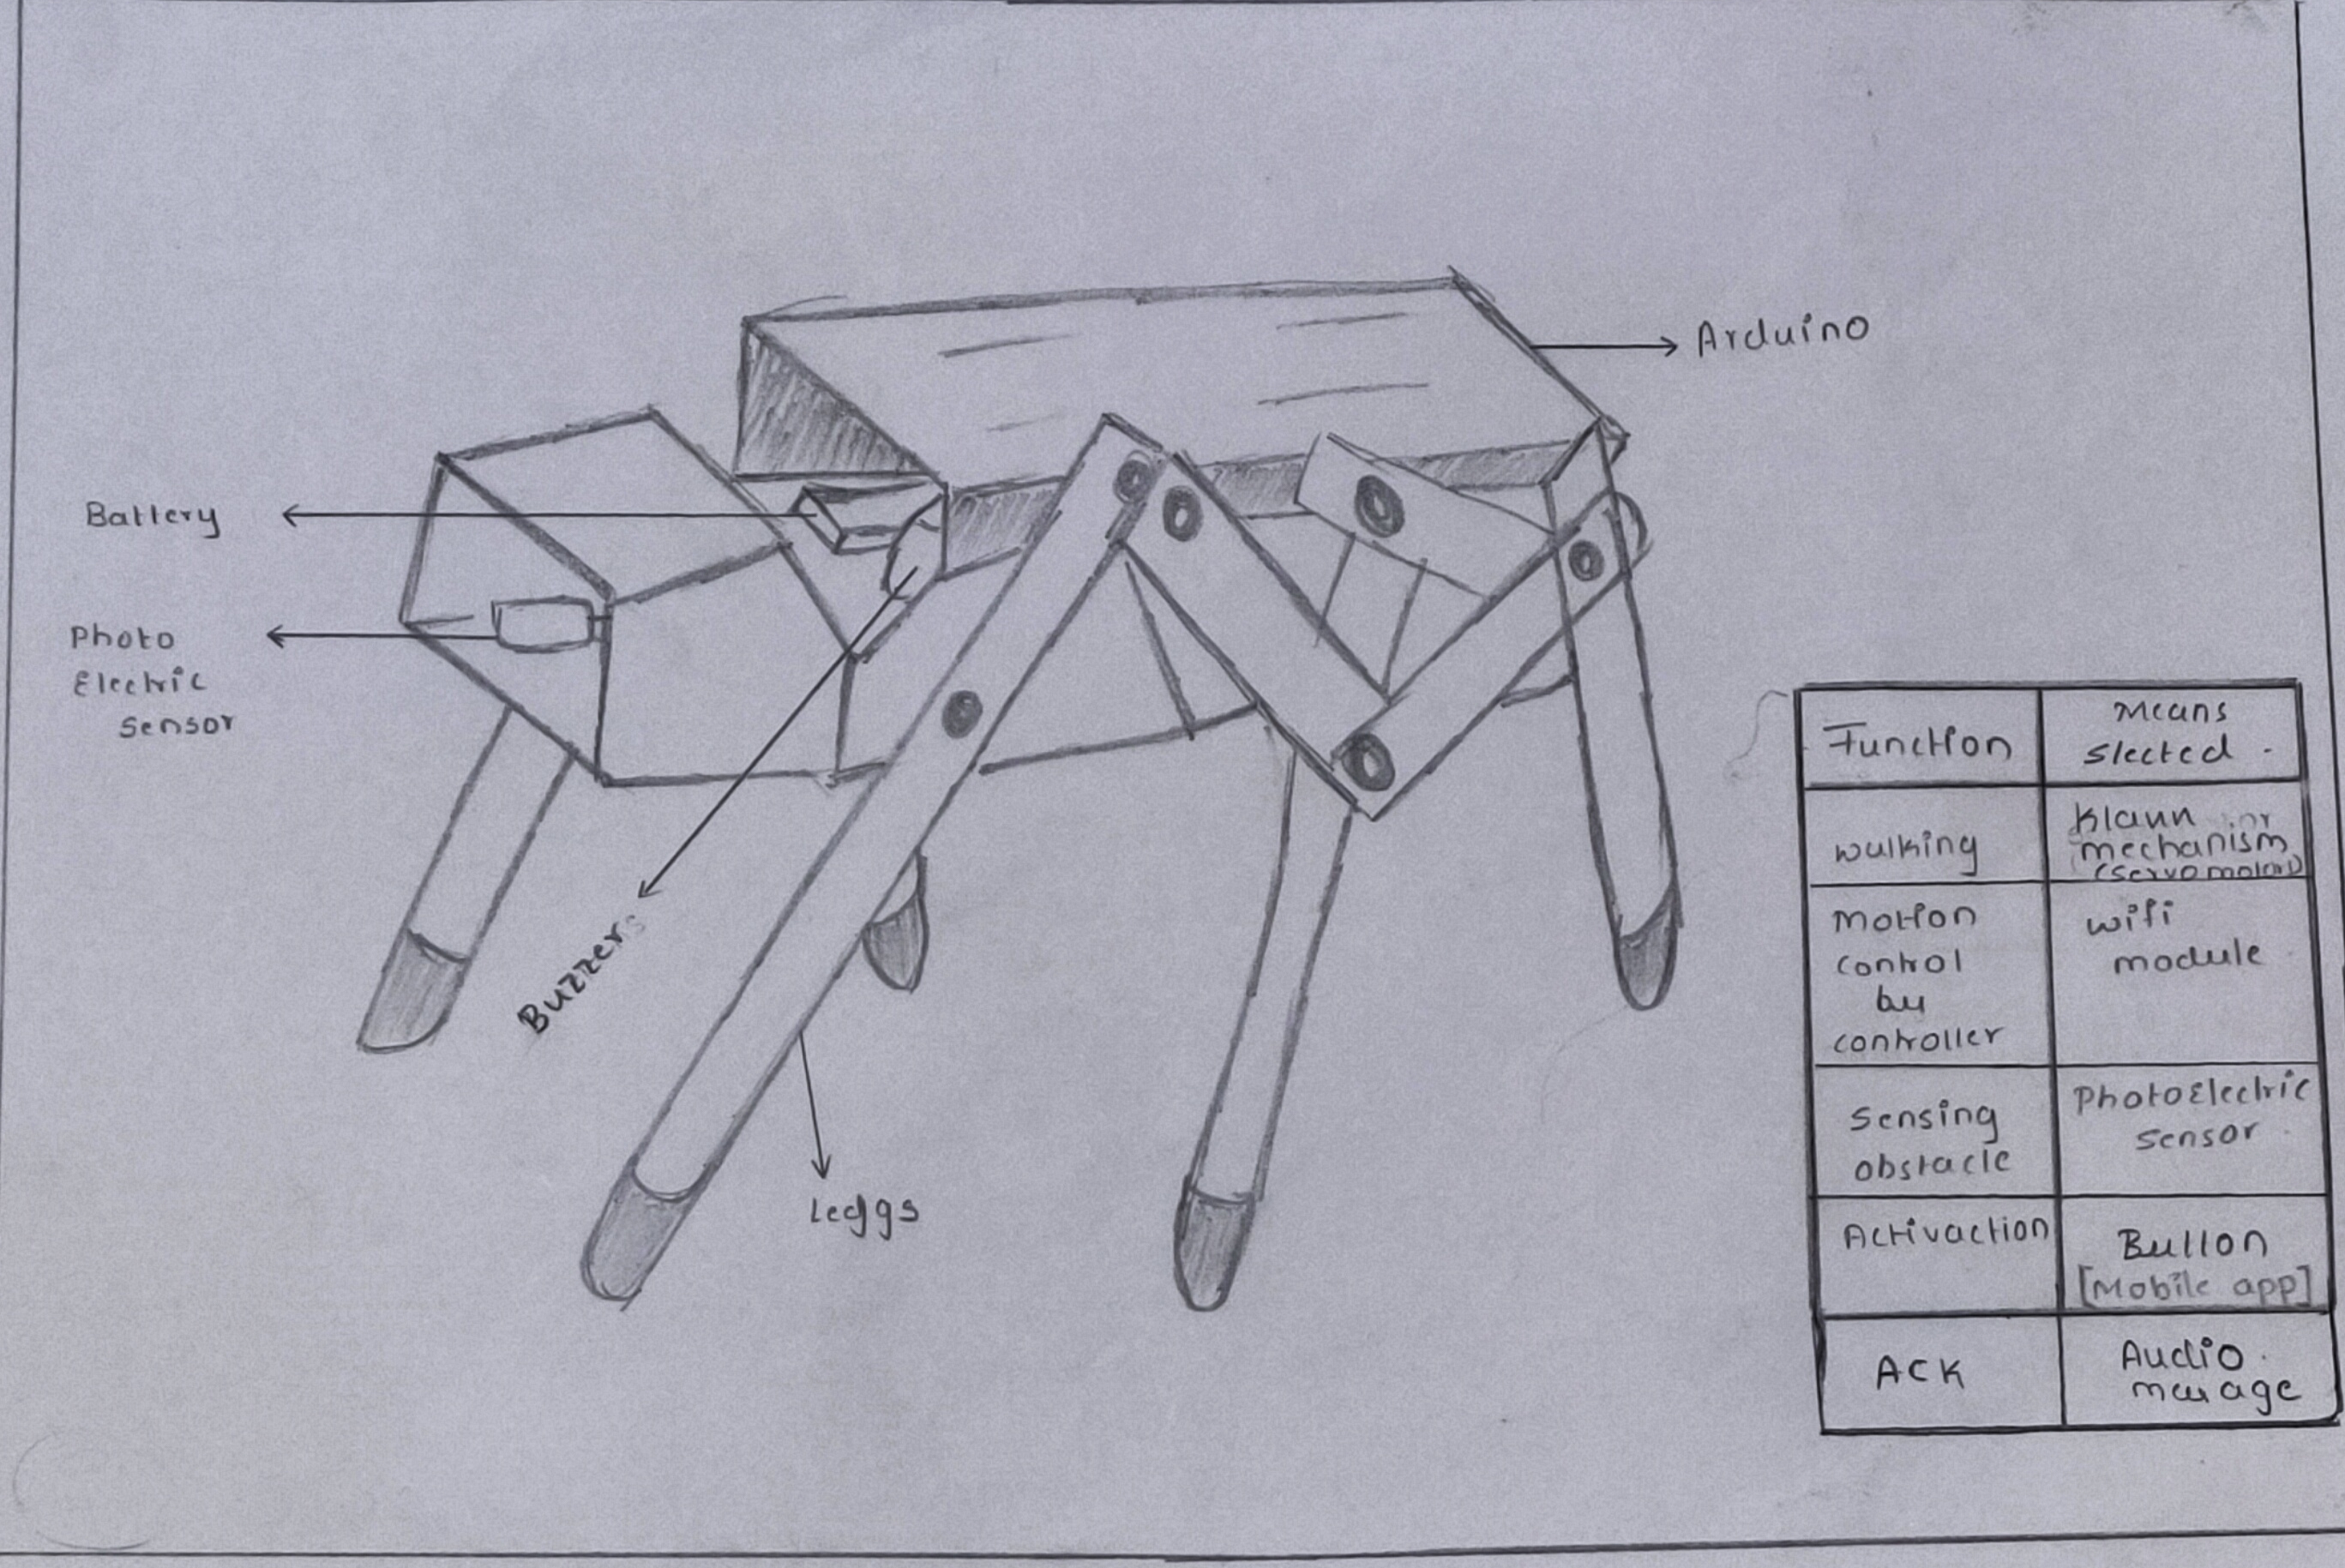 Arduino
Battery
Photo
Electric
Sensor
Buzzers
Leggs
Function
Means
Slected.
walking
Klann
mechanism
(servo motors)
Motion
control
by
controller
wifi
module
Sensing
obstacle
PhotoElectric
Sensor
Activaction
Button
[Mobile app]
ACK
Audio